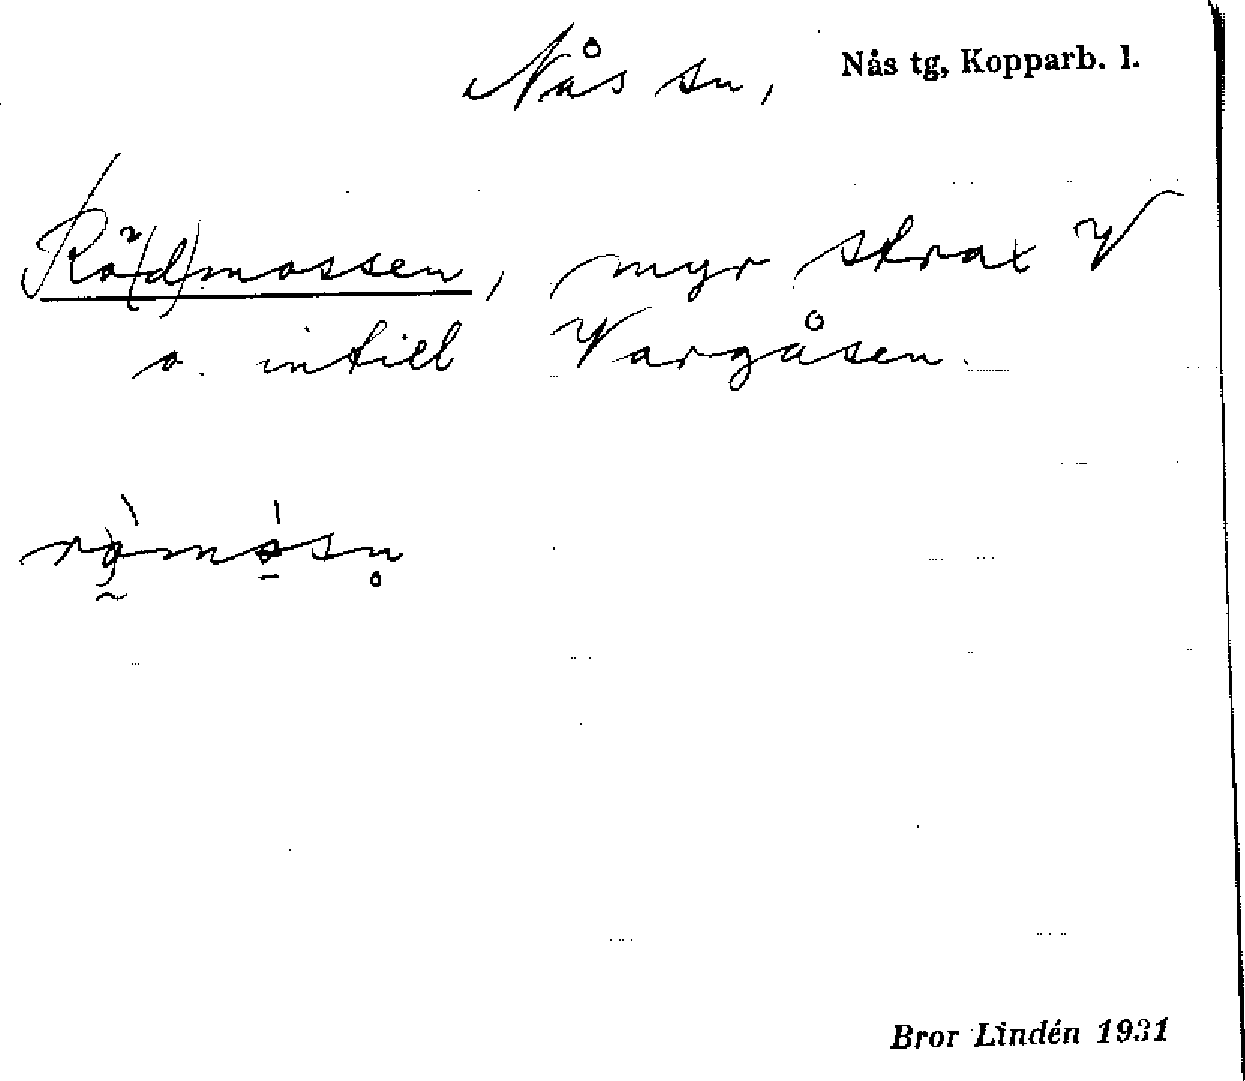 Nås sn, Nås tg, Kopparb. l.
Rö(d)mossen, myr strax V
o. intill Vargåsen.
Bror Lindén 1931